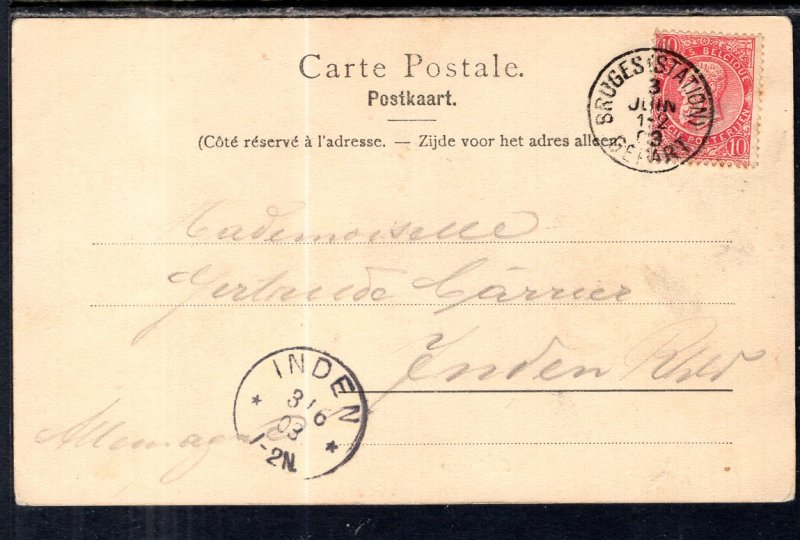 Carte Postale.
Postkaart.
(Côté réservé à l'adresse. — Zijde voor het adres alleen.
10 10
BELGIQUE
BRUGES (STATION)
3
JUIN
1-2
03
DEPART
Mademoiselle
Gertrude Carrier
Inden Rhld
INDEN
3/6
03
1-2N.
Allemagne